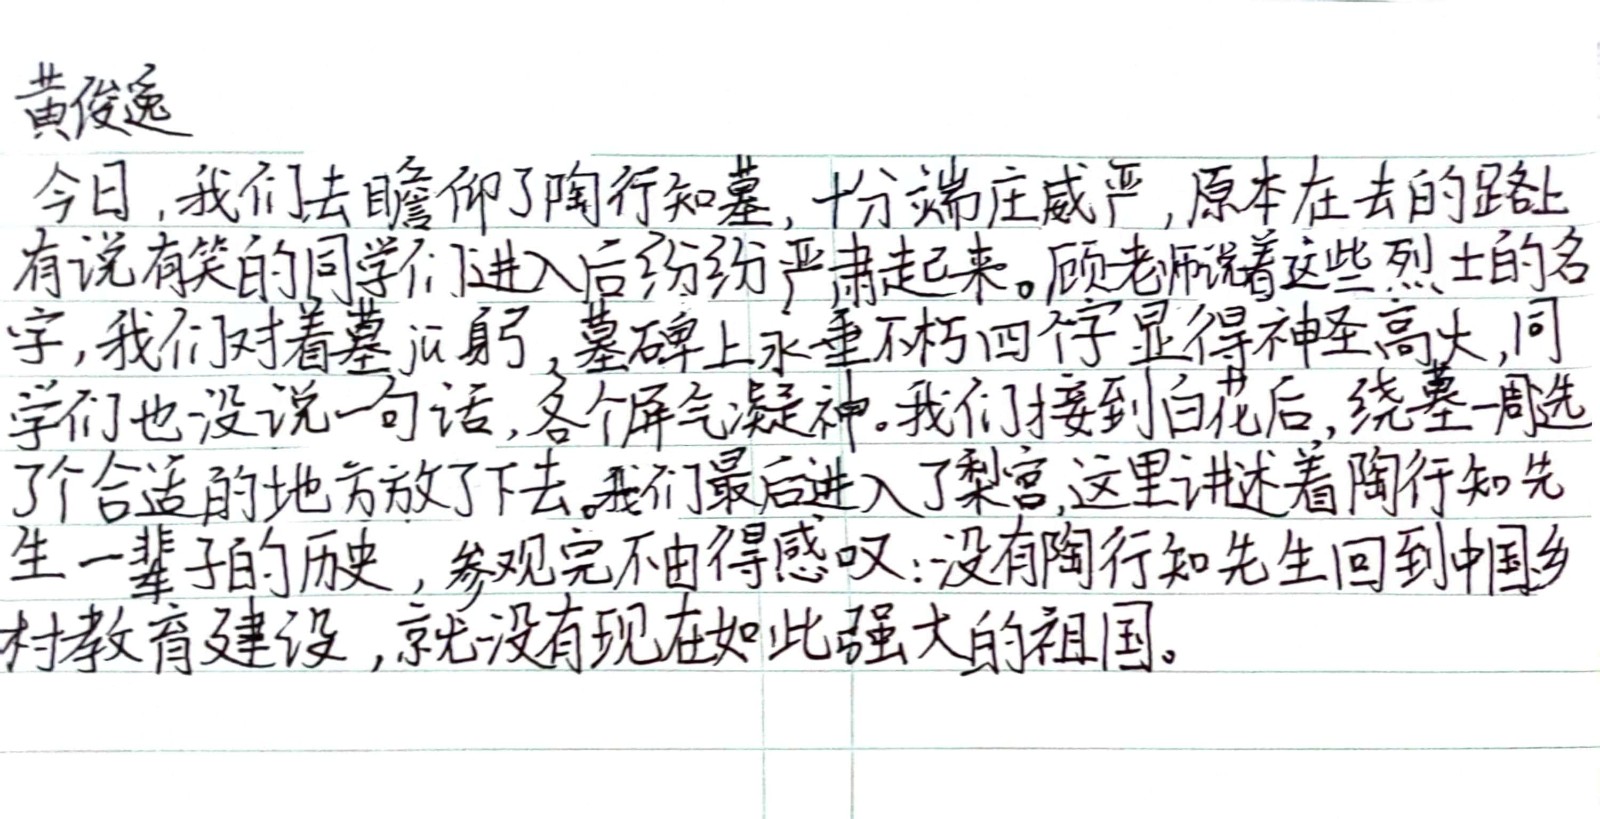 黄俊逸
今日,我们去瞻仰了陶行知墓,十分端庄威严,原本在去的路上
有说有笑的同学们进入后纷纷严肃起来。顾老师说着这些烈士的名
字,我们对着墓jū躬,墓碑上永垂不朽四个字显得神圣高大,同
学们也没说一句话,各个屏气凝神。我们接到白花后,绕墓一周选
了个合适的地方放了下去。我们最后进入了梨宫,这里讲述着陶行知先
生一辈子的历史,参观完不由得感叹:没有陶行知先生回到中国乡
村教育建设,就没有现在如此强大的祖国。